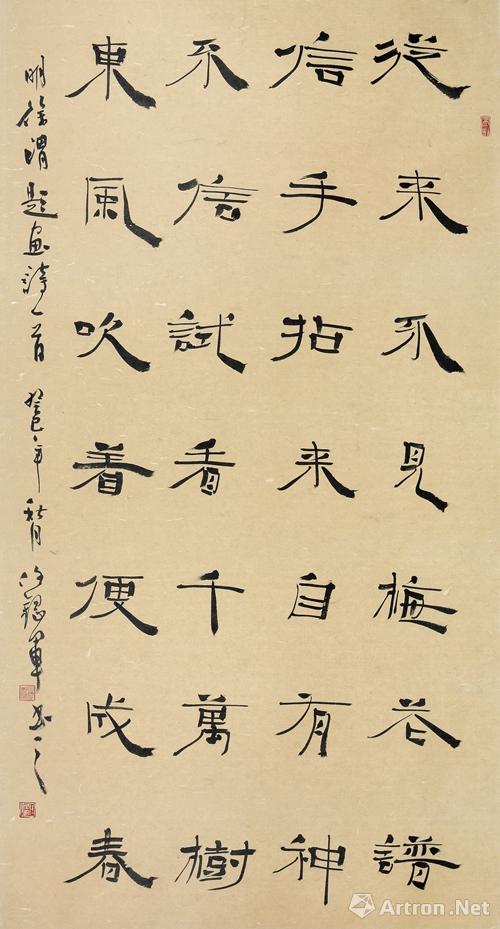 從來不見梅花譜
信手拈來自有神
不信試看千萬樹
東風吹着便成春
明徐渭題畫詩一首 癸巳年秋月 軍書之
Artron.Net